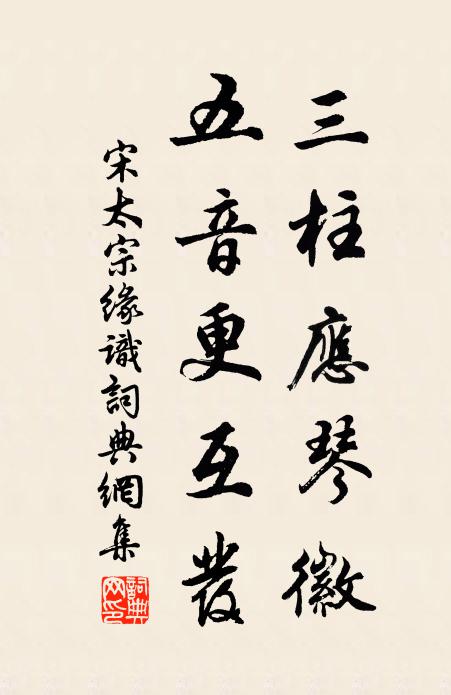 三柱應琴徽
五音更互發
宋太宗緣識詞典網集
詞典網印